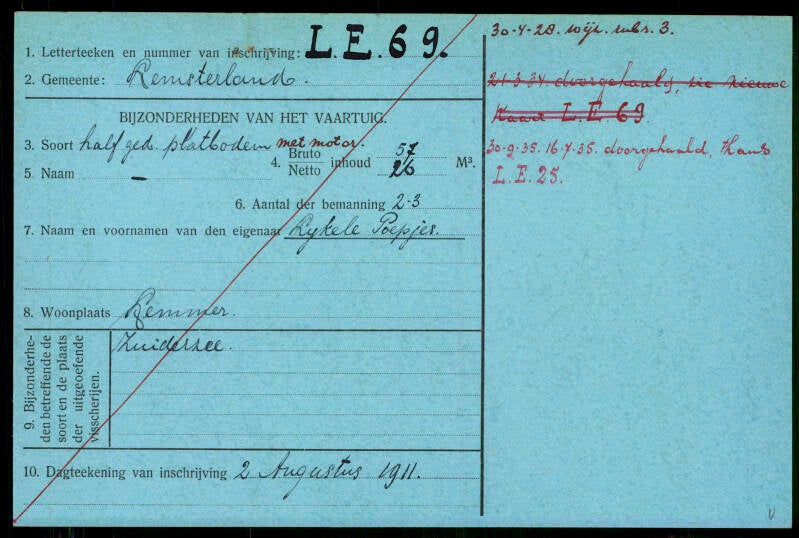 1. Letterteeken en nummer van inschrijving: L.E.69.
2. Gemeente: Lemsterland.
BIJZONDERHEDEN VAN HET VAARTUIG.
3. Soort half ged. platbodem met motor.
4. Bruto Netto inhoud 57 26 M³.
5. Naam —
6. Aantal der bemanning 2-3
7. Naam en voornamen van den eigenaar Lykele Poepjes.
8. Woonplaats Lemmer.
9. Bijzonderhe-
den betreffende de
soort en de plaats
der uitgeoefende
visscherijen.
Zuiderzee.
10. Dagteekening van inschrijving 2 Augustus 1911.
30-4-28. wijz. rubr. 3.
21-3-34. doorgehaald, zie nieuwe
kaart L.E. 69.
30-9-35. 16-7-35. doorgehaald, thans
L.E. 25.